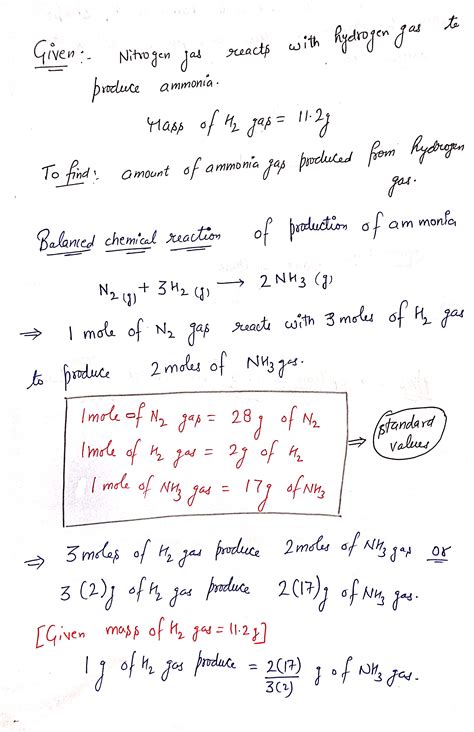 Given:- Nitrogen gas reacts with hydrogen gas to
produce ammonia.
Mass of H₂ gas = 11.2g
To find:- amount of ammonia gas produced from hydrogen
gas.
Balanced chemical reaction of production of ammonia
N₂(g) + 3H₂(g) → 2NH₃(g)
⇒ 1 mole of N₂ gas reacts with 3 moles of H₂ gas
to produce 2 moles of NH₃ gas.
1 mole of N₂ gas = 28g of N₂
1 mole of H₂ gas = 2g of H₂
⇒ standard values
1 mole of NH₃ gas = 17g of NH₃
⇒ 3 moles of H₂ gas produce 2 moles of NH₃ gas or
3(2)g of H₂ gas produce 2(17)g of NH₃ gas.
[Given mass of H₂ gas = 11.2g]
1g of H₂ gas produce = 2(17)/3(2) g of NH₃ gas.